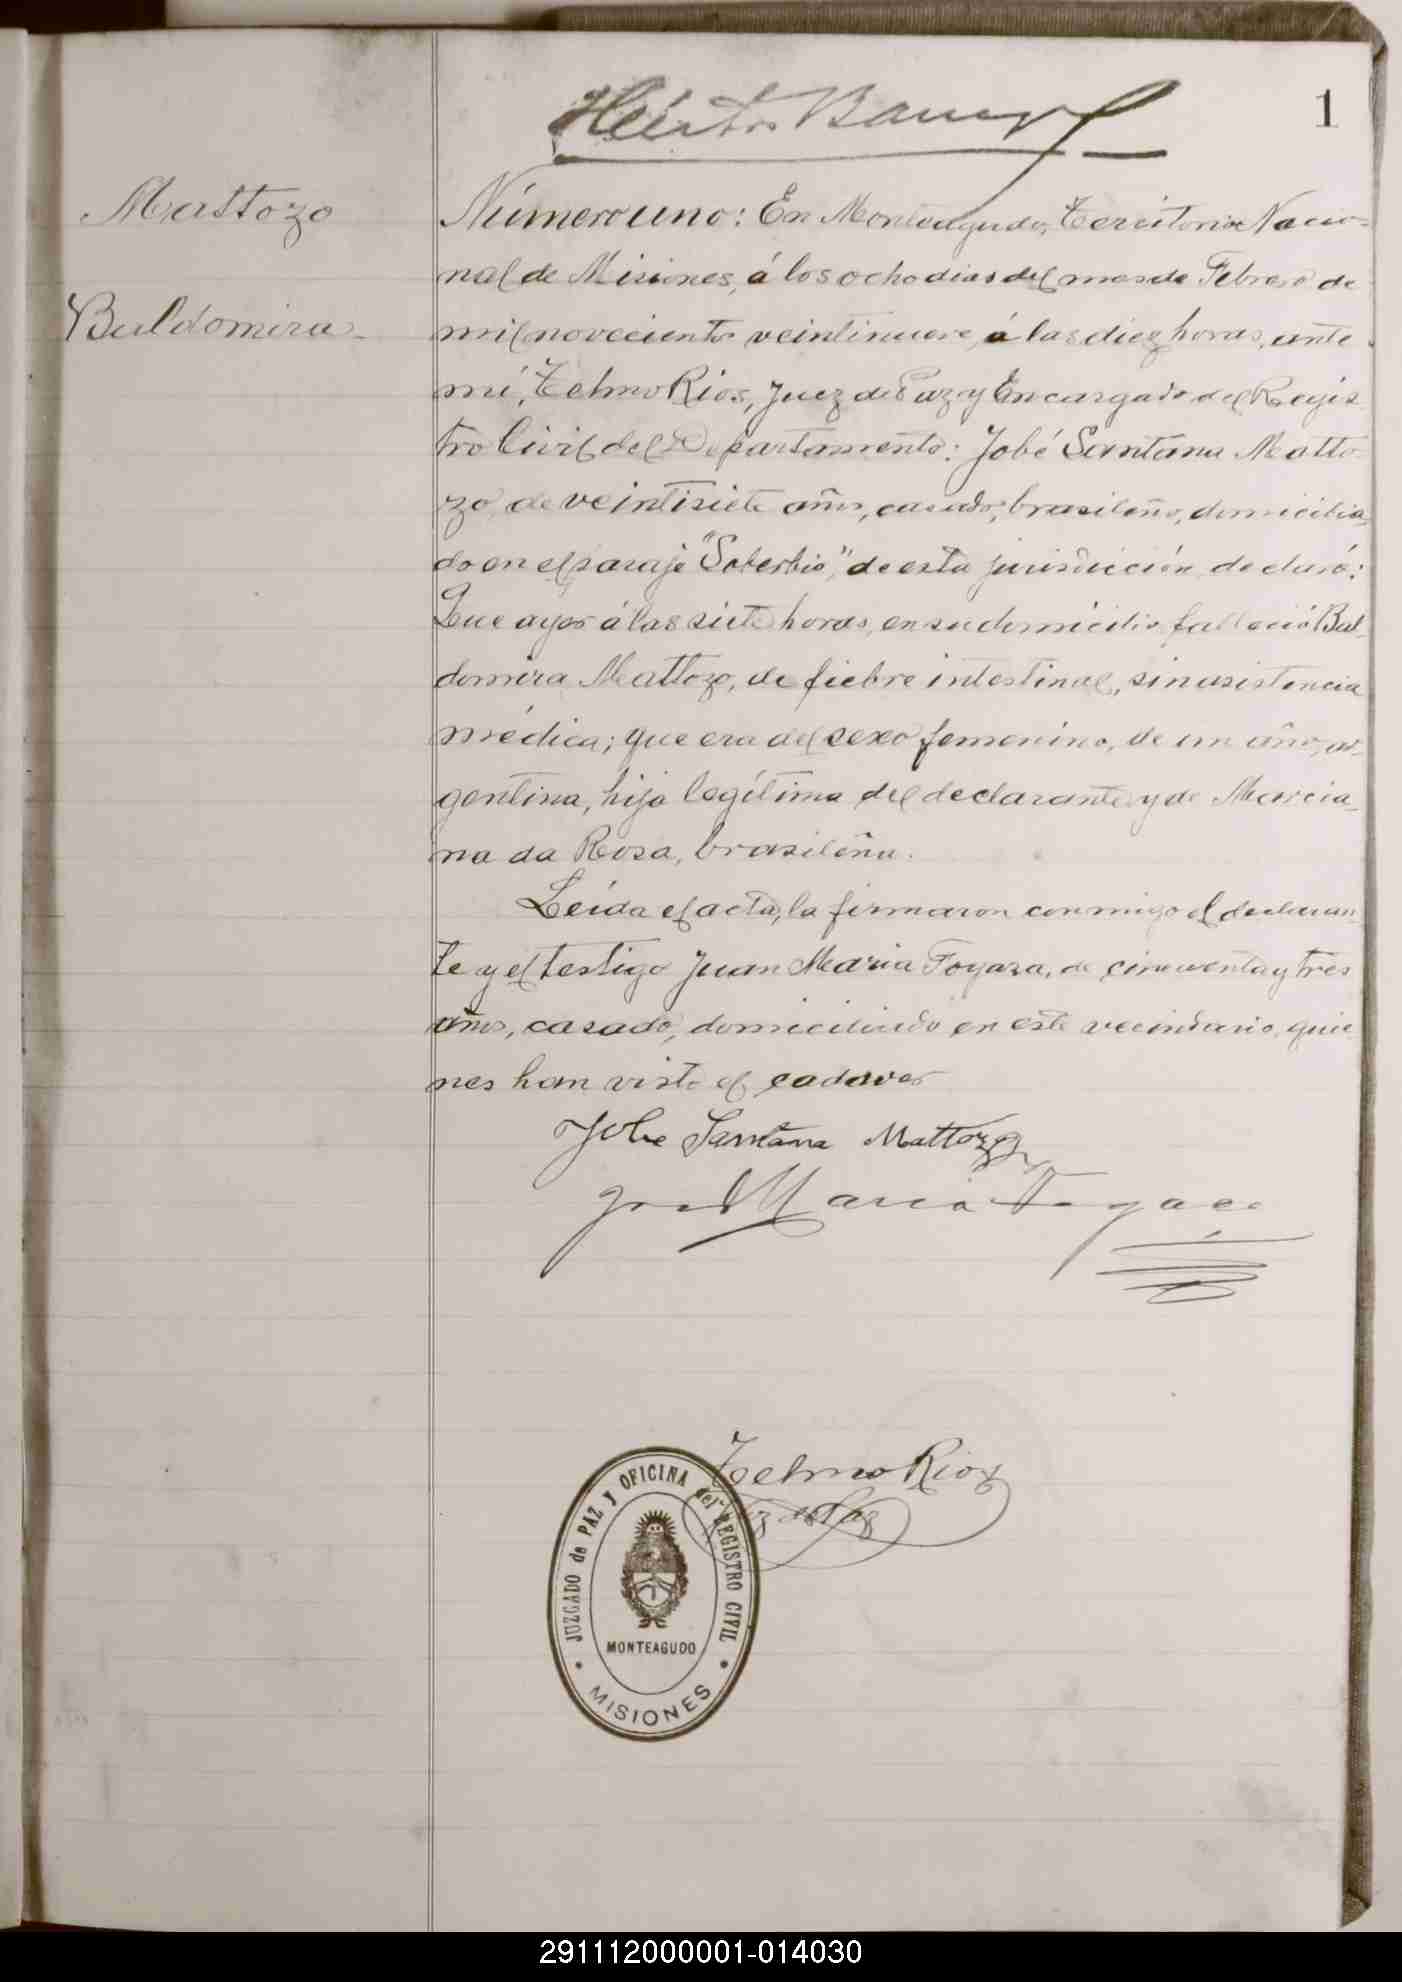 1
Héctor
Mattozo
Baldomira
Número uno: En Monteagudo, Territorio Nacio-
nal de Misiones, á los ocho dias del mes de Febrero de
mil novecientos veintinueve, á las diez horas, ante
mí, Telmo Rios, Juez de Paz y Encargado del Regis
tro Civil del Departamento: Jobé Santana Matto-
zo, de veintisiete años, casado, brasileño, domicilia-
do en el paraje "Soberbio", de esta jurisdicción, declaró:
Que ayer á las siete horas, en su domicilio falleció Bal-
domira Mattozo, de fiebre intestinal, sin asistencia
médica; que era del sexo femenino, de un año, ar-
gentina, hija legítima del declarante y de Marcia-
na da Rosa, brasileña.
Leída el acta, la firmaron conmigo el declaran-
te y el testigo Juan Maria Foyaza, de cincuenta y tres
años, casado, domiciliado en este vecindario, quie-
nes han visto el cadaver
Jobe Santana Mattozo
Maria
Telmo Rios
Juez de Paz
JUZGADO de PAZ y OFICINA del REGISTRO CIVIL
MONTEAGUDO
MISIONES
291112000001-014030